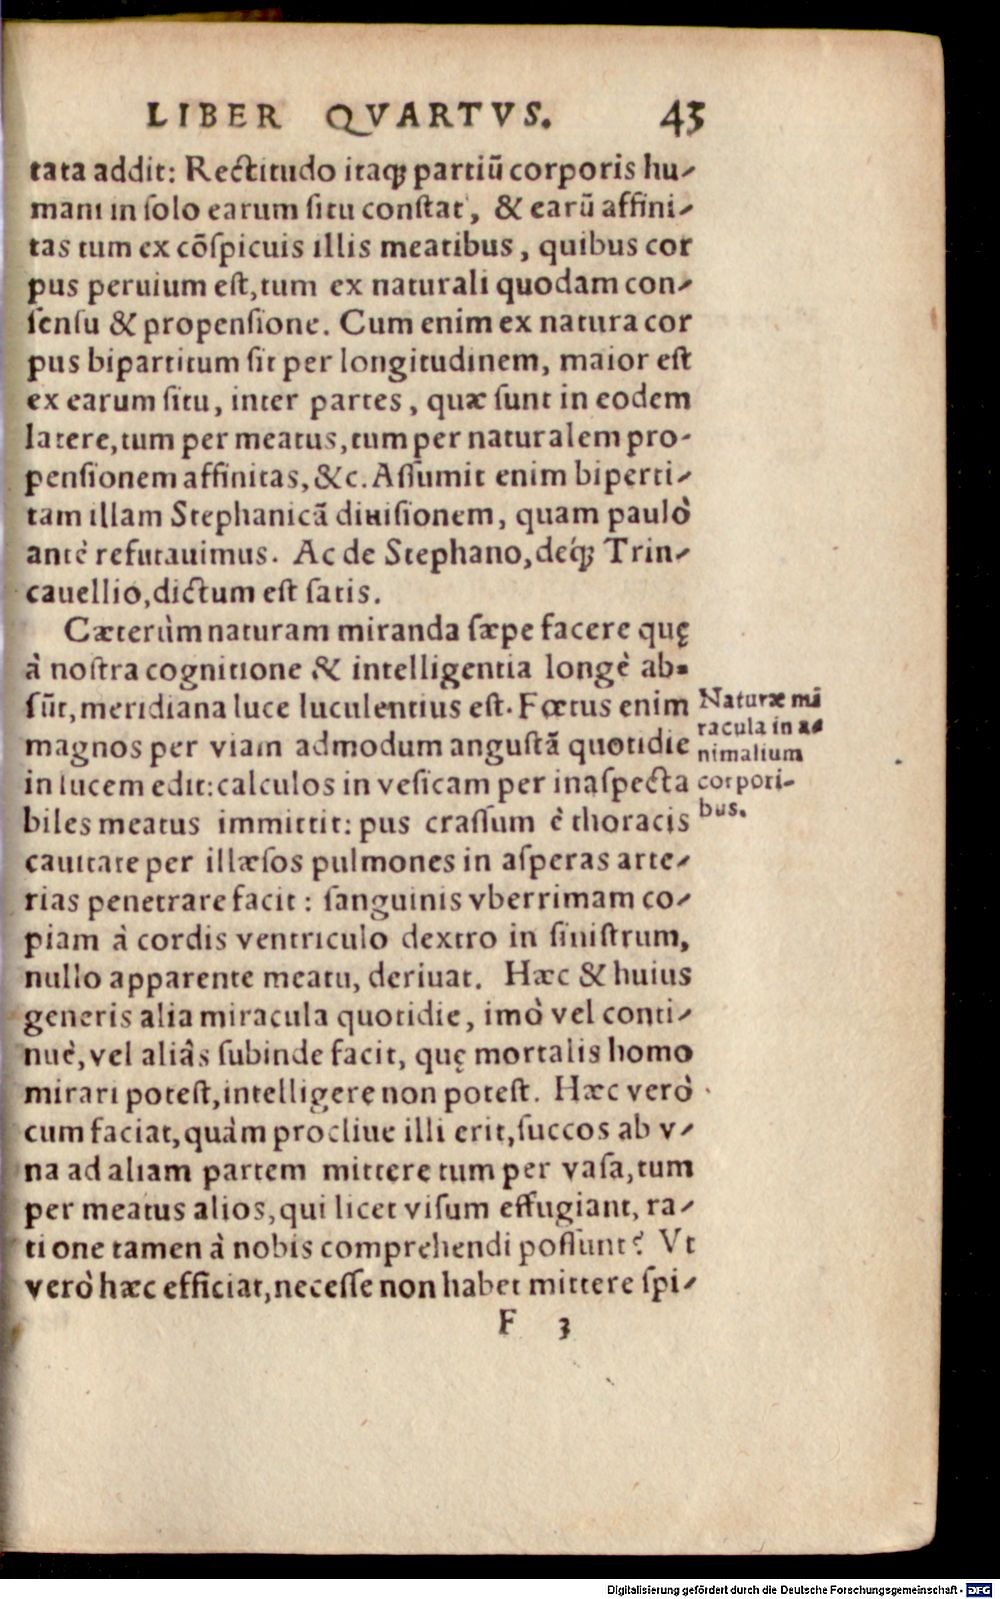 LIBER QVARTVS. 43
tata addit: Rectitudo itaq; partiū corporis hu-
mani in ſolo earum ſitu conſtat, & earū affini-
tas tum ex cōſpicuis illis meatibus, quibus cor
pus peruium eſt, tum ex naturali quodam con-
ſenſu & propenſione. Cum enim ex natura cor
pus bipartitum ſit per longitudinem, maior eſt
ex earum ſitu, inter partes, quæ ſunt in eodem
latere, tum per meatus, tum per naturalem pro-
penſionem affinitas, &c. Aſſumit enim biperti-
tam illam Stephanicā diuiſionem, quam paulò
antè refutauimus. Ac de Stephano, deq́; Trin-
cauellio, dictum eſt ſatis.
Cæterùm naturam miranda ſæpe facere quę
à noſtra cognitione & intelligentia longè ab-
ſūt, meridiana luce luculentius eſt. Fœtus enim
magnos per viam admodum anguſtā quotidie
in lucem edit: calculos in veſicam per inaſpecta
biles meatus immittit: pus craſſum è thoracis
cauitate per illæſos pulmones in aſperas arte-
rias penetrare facit: ſanguinis vberrimam co-
piam à cordis ventriculo dextro in ſiniſtrum,
nullo apparente meatu, deriuat. Hæc & huius
generis alia miracula quotidie, imò vel conti-
nuè, vel aliâs ſubinde facit, quę mortalis homo
mirari poteſt, intelligere non poteſt. Hæc verò
cum faciat, quàm procliue illi erit, ſuccos ab v-
na ad aliam partem mittere tum per vaſa, tum
per meatus alios, qui licet viſum effugiant, ra-
tione tamen à nobis comprehendi poſſunt? Vt
verò hæc efficiat, neceſſe non habet mittere ſpi-
F 3
Naturæ mi
racula in a-
nimalium
corpori-
bus.
Digitalisierung gefördert durch die Deutsche Forschungsgemeinschaft - DFG